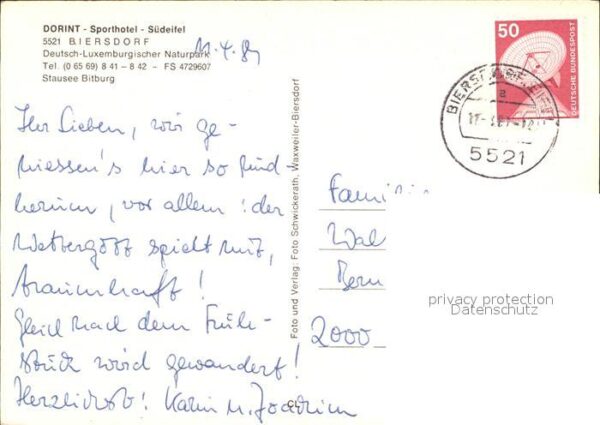 DORINT - Sporthotel - Südeifel
5521 BIERSDORF
Deutsch-Luxemburgischer Naturpark
Tel. (0 65 69) 8 41 - 8 42 - FS 4729607
Stausee Bitburg
11.4.81
Ihr Lieben, wir ge-
niessen's hier so rund
herum, vor allem: der
Wettergott spielt mit,
traumhaft!
Gleich nach dem Früh-
stück wird gewandert!
Herzlichst! Karin u. Joachim
Foto und Verlag: Foto Schwickerath, Waxweiler-Biersdorf
CL
50
DEUTSCHE BUNDESPOST
a
5521
Famili
Wal
Bern
2000
privacy protection
Datenschutz